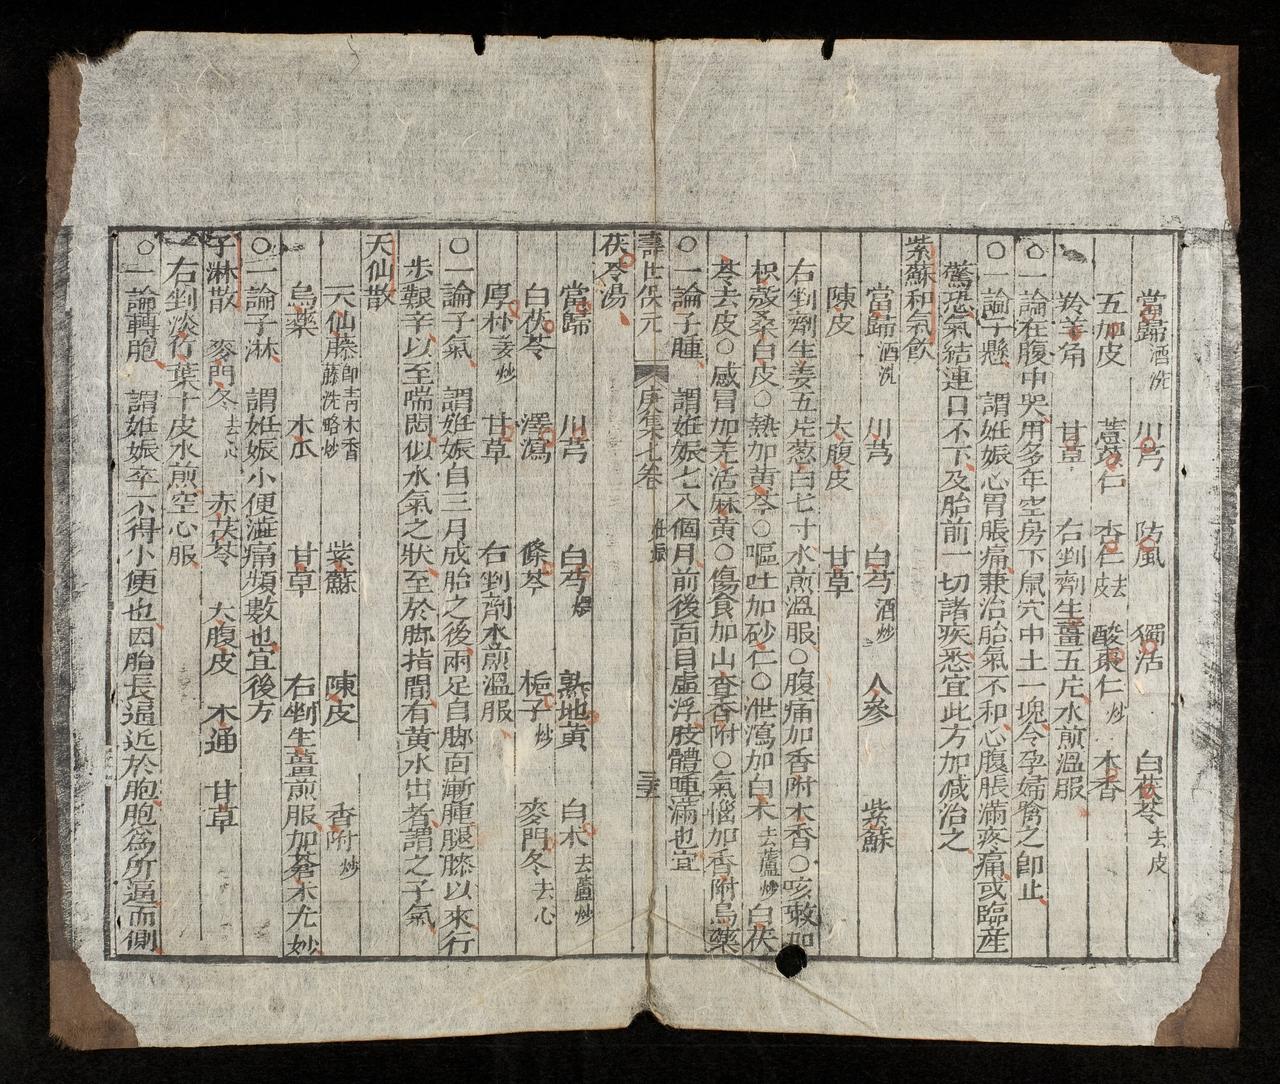 當歸酒洗 川芎 防風 獨活 白茯苓去皮
五加皮 薏苡仁 杏仁去皮 酸棗仁炒 木香
羚羊角 甘草 右剉劑生薑五片水煎溫服
○一論在腹中哭用多年空房下鼠穴中土一塊令孕婦噙之即止
○一論子懸 謂姙娠心胃脹痛兼治胎氣不和心腹脹滿疼痛或臨産
驚恐氣結連日不下及胎前一切諸疾悉宜此方加減治之
紫蘇和氣飲
當歸酒洗 川芎 白芍酒炒 人參 紫蘇
陳皮 大腹皮 甘草
右剉劑生姜五片葱白七寸水煎溫服○腹痛加香附木香○咳嗽加
枳殼桑白皮○熱加黄芩○嘔吐加砂仁○泄瀉加白术去蘆炒白茯
苓去皮○感冒加羌活麻黄○傷食加山查香附○氣惱加香附烏藥
○一論子腫 謂姙娠七八個月前後面目虛浮肢體腫滿也宜
壽世保元 庚集七卷 姙娠 三五
茯苓湯
當歸 川芎 白芍煨 熟地黄 白术去蘆炒
白茯苓 澤瀉 條芩 梔子炒 麥門冬去心
厚朴姜炒 甘草 右剉劑水煎溫服
○一論子氣 謂姙娠自三月成胎之後兩足自脚面漸腫腿膝以來行
步艱辛以至喘悶似水氣之狀至於脚指間有黄水出者謂之子氣
天仙散
天仙藤即青木香藤洗略炒 紫蘇 陳皮 香附炒
烏藥 木瓜 甘草 右剉生薑煎服加蒼术尤妙
○一論子淋 謂姙娠小便澁痛頻數也宜後方
子淋散 麥門冬去心 赤茯苓 大腹皮 木通 甘草
右剉淡竹葉十皮水煎空心服
○一論轉胞 謂姙娠卒不得小便也因胎長逼近於胞胞爲所逼而側